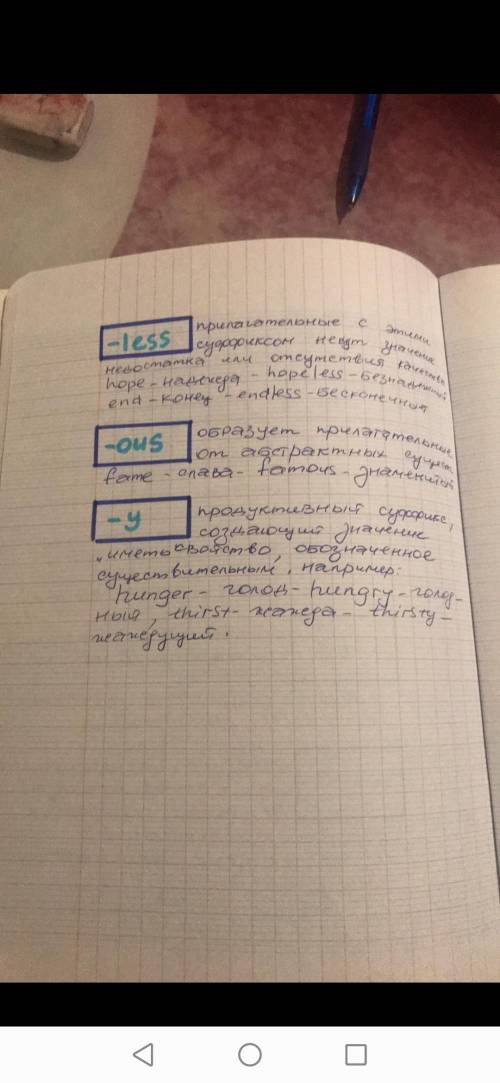 -less прилагательные с этими
суффиксом несут значение
недостатка или отсутствия качества
hope - надежда - hopeless - безнадежный
end - конец - endless - бесконечный
-ous образует прилагательные
от абстрактных сущест
fame - слава - famous - знаменитый
-y продуктивный суффикс,
создающий значение
„иметь свойство, обозначенное
существительным, например:
hunger - голод - hungry - голод-
ный, thirst - жажда - thirsty -
жаждущий.